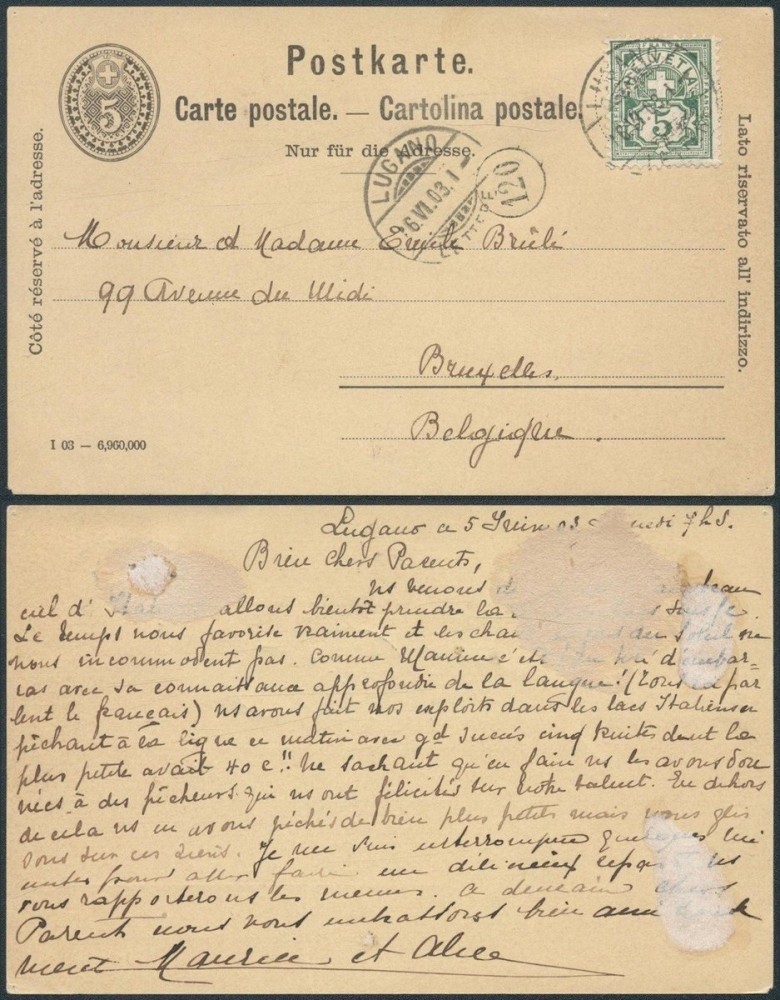 Postkarte.
Carte postale. — Cartolina postale.
Nur für die Adresse.
5
HELVETIA
5
LUGANO
LUGANO
6.VI.03.1
LETTERE
120
Côté réservé à l'adresse.
Lato riservato all' indirizzo.
Monsieur et Madame Emile Brûlé
99 Avenue du Midi
Bruxelles
Belgique.
I 03 — 6,960,000
Lugano ce 5 Juin 03 7 h S.
Bien chers Parents,
ns venons beau
ciel d' allons bientôt prendre la
Le temps nous favorise vraiment et les du soleil ne
nous incommodent pas. Comme Maurice d'embar-
ras avec sa connaissance approfondie de la langue! (Tous par
lent le français) ns avons fait nos exploits dans les lacs Italiens en
pêchant à la ligne ce matin avec gd succès cinq dont la
plus petite avait 40 c!! Ne sachant qu'en faire ns les avons don
nées à des pêcheurs qui ns ont félicités sur notre talent. En dehors
de cela ns en avons pêchés de bien plus petits mais nous glis
sons sur ces riens. Je me suis interrompue quelques mi
nutes pour aller faire un délicieux repas ns
vous rapporterons les menus. A demain chers
Parents nous vous embrassons bien
ment Maurice et Alice